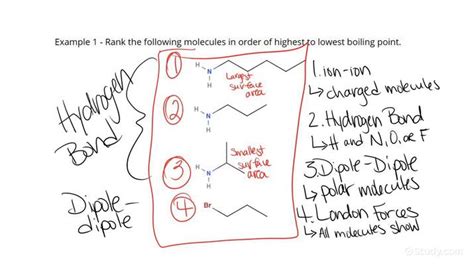 Example 1 - Rank the following molecules in order of highest to lowest boiling point.
Hydrogen
Bond
Dipole-
dipole
1
H
N
H
Largest
surface
area
2
H
N
H
3
H
N
H
Smallest
surface
area
4
Br
1. ion-ion
↳ charged molecules
2. Hydrogen Bond
↳ H and N, O, or F
3. Dipole-Dipole
↳ polar molecules
4. London Forces
↳ All molecules show
Study.com